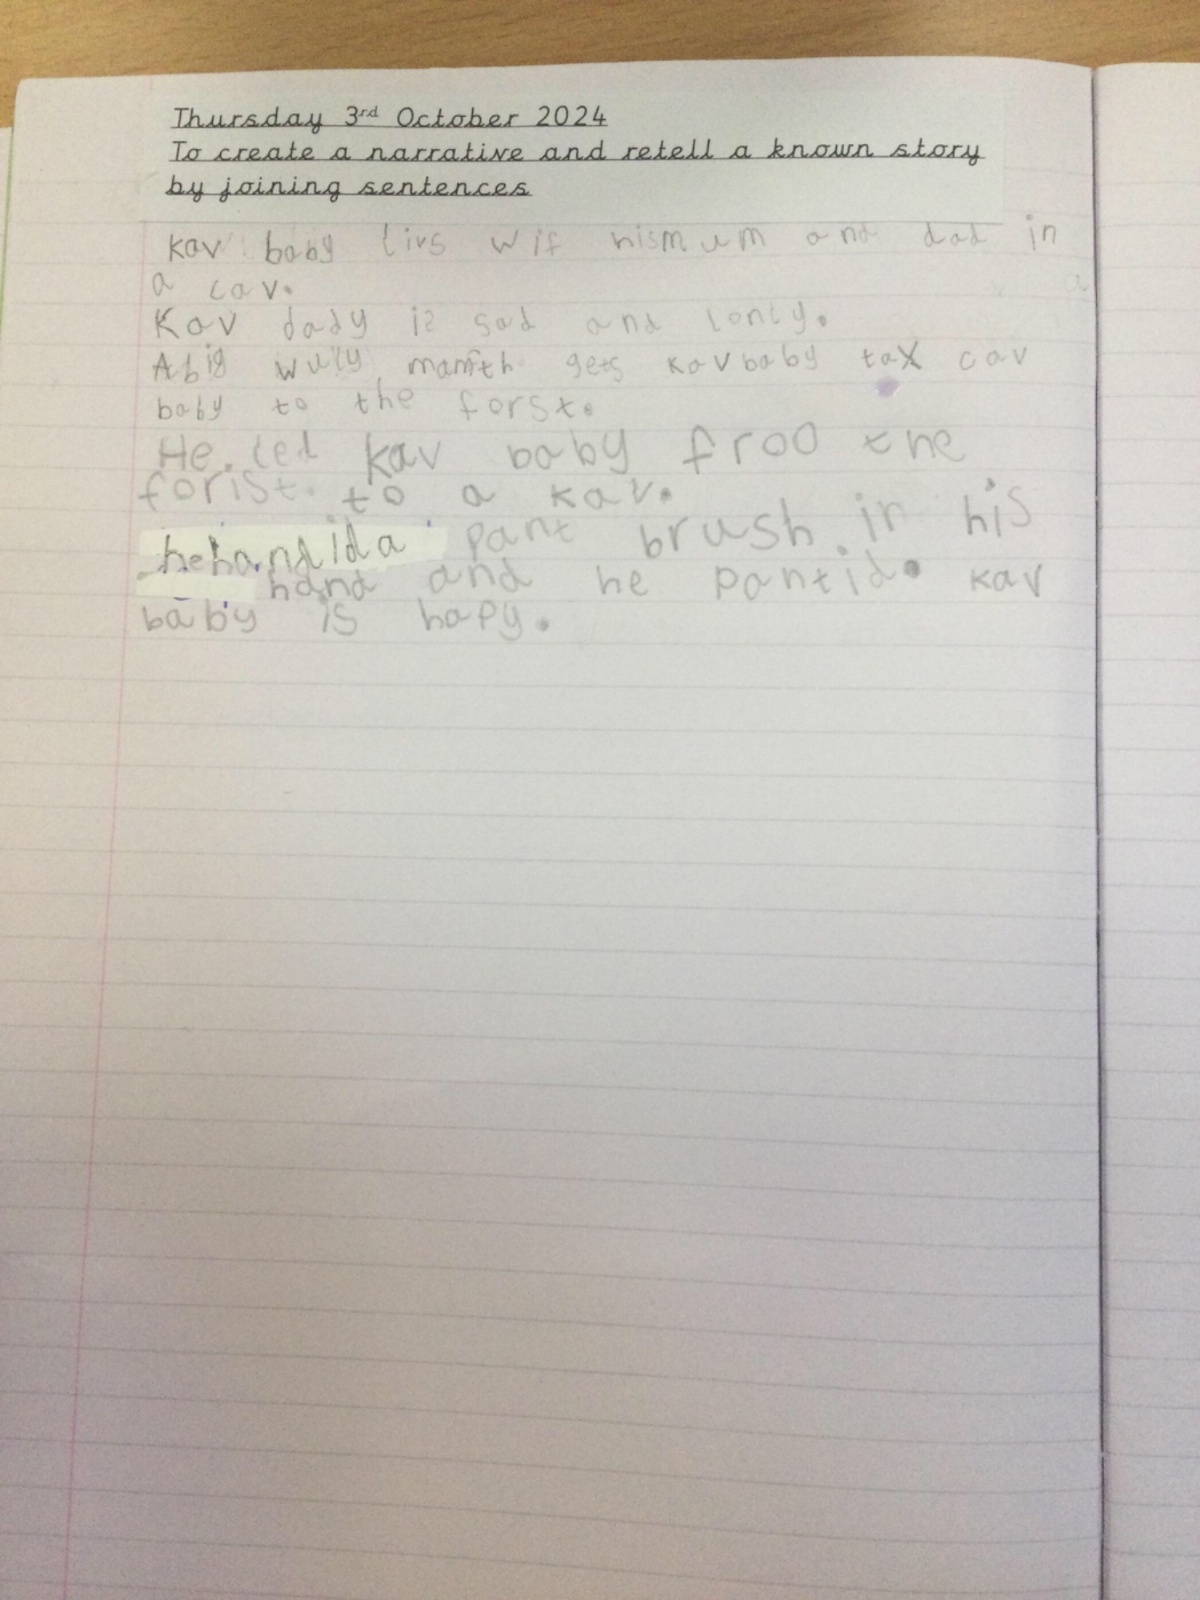 Thursday 3rd October 2024
To create a narrative and retell a known story
by joining sentences
Kav baby livs wif hismum and dad in
a cav.
Kav dady is sad and lonly.
A big wuly mamth gets Kavbaby tax cav
baby to the forst.
He led kav baby froo the
forist. to a kav.
hehandida pant brush in his
hand and he pantid. kav
baby is hapy.